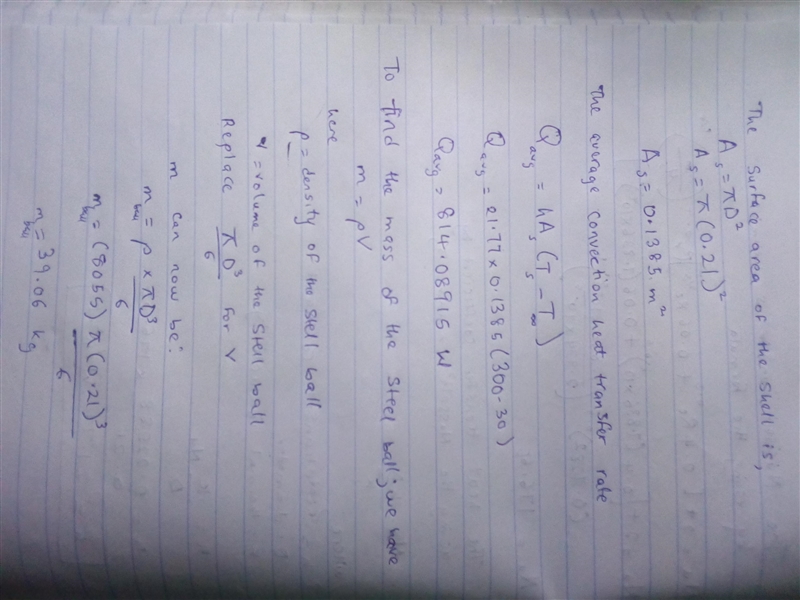 The surface area of the shell is,
A_s = πD²
∴ A_s = π(0.21)²
A_s = 0.1385 m²
The average convection heat transfer rate
Q_avg = hA_s(T_s - T_∞)
Q_avg = 21.77 × 0.1385 (300-30)
Q_avg = 814.08915 W
To find the mass of the Steel ball; we have
m = ρV
here
ρ = density of the Stell ball
V = volume of the Stell ball
Replace πD³/6 for V
m can now be:
m_ball = ρ × πD³/6
m_ball = (8055) π(0.21)³/6
m_ball = 39.06 kg